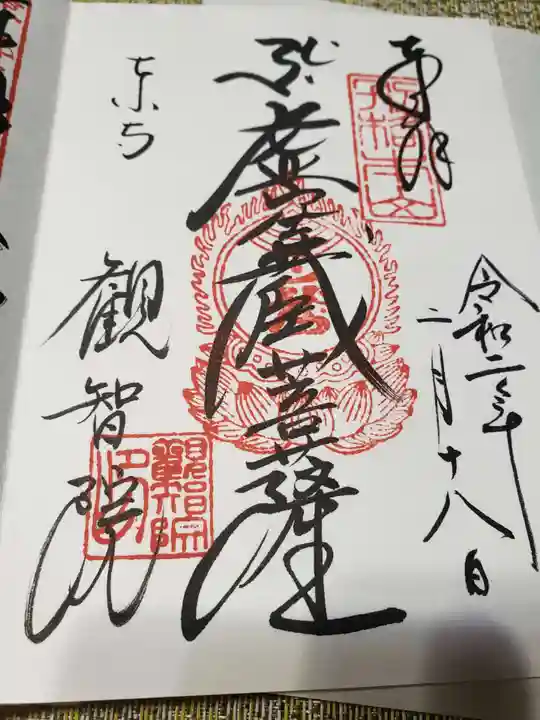 奉拝
令和二年
二月十八日
五大虚空蔵菩薩
東寺
観智院